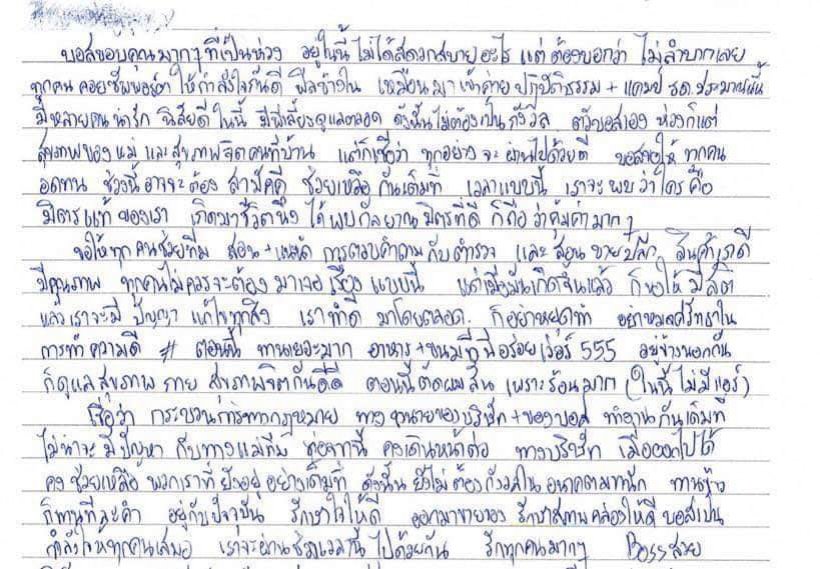 บอสขอบคุณมากๆที่เป็นห่วง อยู่ในนี้ไม่ได้สะดวกสบายอะไร แต่ต้องบอกว่า ไม่ลำบากเลย
ทุกคนคอยซัพพอร์ต ให้กำลังใจกันดี ฟีลข้างใน เหมือนมาเข้าค่ายปฏิบัติธรรม + แคมป์ รด. ประมาณนั้น
มีหลายคนน่ารัก นิสัยดีในนี้ มีพี่เลี้ยงดูแลตลอด ดังนั้นไม่ต้องเป็นกังวล ตัวบอสเอง ห่วงก็แต่
สุขภาพของแม่ และสุขภาพจิตคนที่บ้าน แต่ก็เชื่อว่า ทุกอย่างจะผ่านไปด้วยดี บอสขอให้ ทุกคน
อดทน ช่วงนี้อาจจะต้อง สามัคคี ช่วยเหลือกันเต็มที่ เวลาแบบนี้ เราจะพบว่าใครคือ
มิตรแท้ ของเรา เกิดมาชีวิตนึง ได้พบกัลยาณมิตรที่ดี ก็ถือว่าคุ้มค่ามากๆ
ขอให้ทุกคนช่วยทีม สอน + การตอบคำถามกับตำรวจ และสอนขายปลีก สินค้าเราดี
มีคุณภาพ ทุกคนไม่ควรจะต้องมาเจอเรื่องแบบนี้ แต่เมื่อมันเกิดขึ้นแล้ว ก็ขอให้มีสติ
แล้วเราจะมี ปัญญา แก้ไขทุกสิ่ง เราทำดี มาโดยตลอด. ก็อย่าหยุดทำ อย่าหมดศรัทธาใน
การทำความดี # ตอนนี้ ทานเยอะมาก อาหาร + ขนมที่นี่อร่อยเว่อร์ 555 อยู่ข้างนอกกัน
ก็ดูแลสุขภาพกาย สุขภาพจิตกันดีดี ตอนนี้ตัดผมสั้น เพราะร้อนมาก (ในนี้ไม่มีแอร์)
เชื่อว่า กระบวนการทางกฎหมาย ทางทนายของบริษัท + ของบอส ทำงานกันเต็มที่
ไม่น่าจะมีปัญหา กับทางแม่ทีม ต่อจากนี้ คงเดินหน้าต่อ ทางบริษัท เมื่อออกไปได้
คงช่วยเหลือ พวกเราที่ยังอยู่อย่างเต็มที่ ดังนั้นยังไม่ต้องกังวลในอนาคตมากนัก ทานข้าว
ก็ทานทีละคำ อยู่กับปัจจุบัน รักษาใจให้ดี ออกมาขายของ รักษาสภาพคล่องให้ดี บอสเป็น
กำลังใจให้ทุกคนเสมอ เราจะผ่านช่วงเวลานี้ ไปด้วยกัน รักทุกคนมากๆ Boss สวย